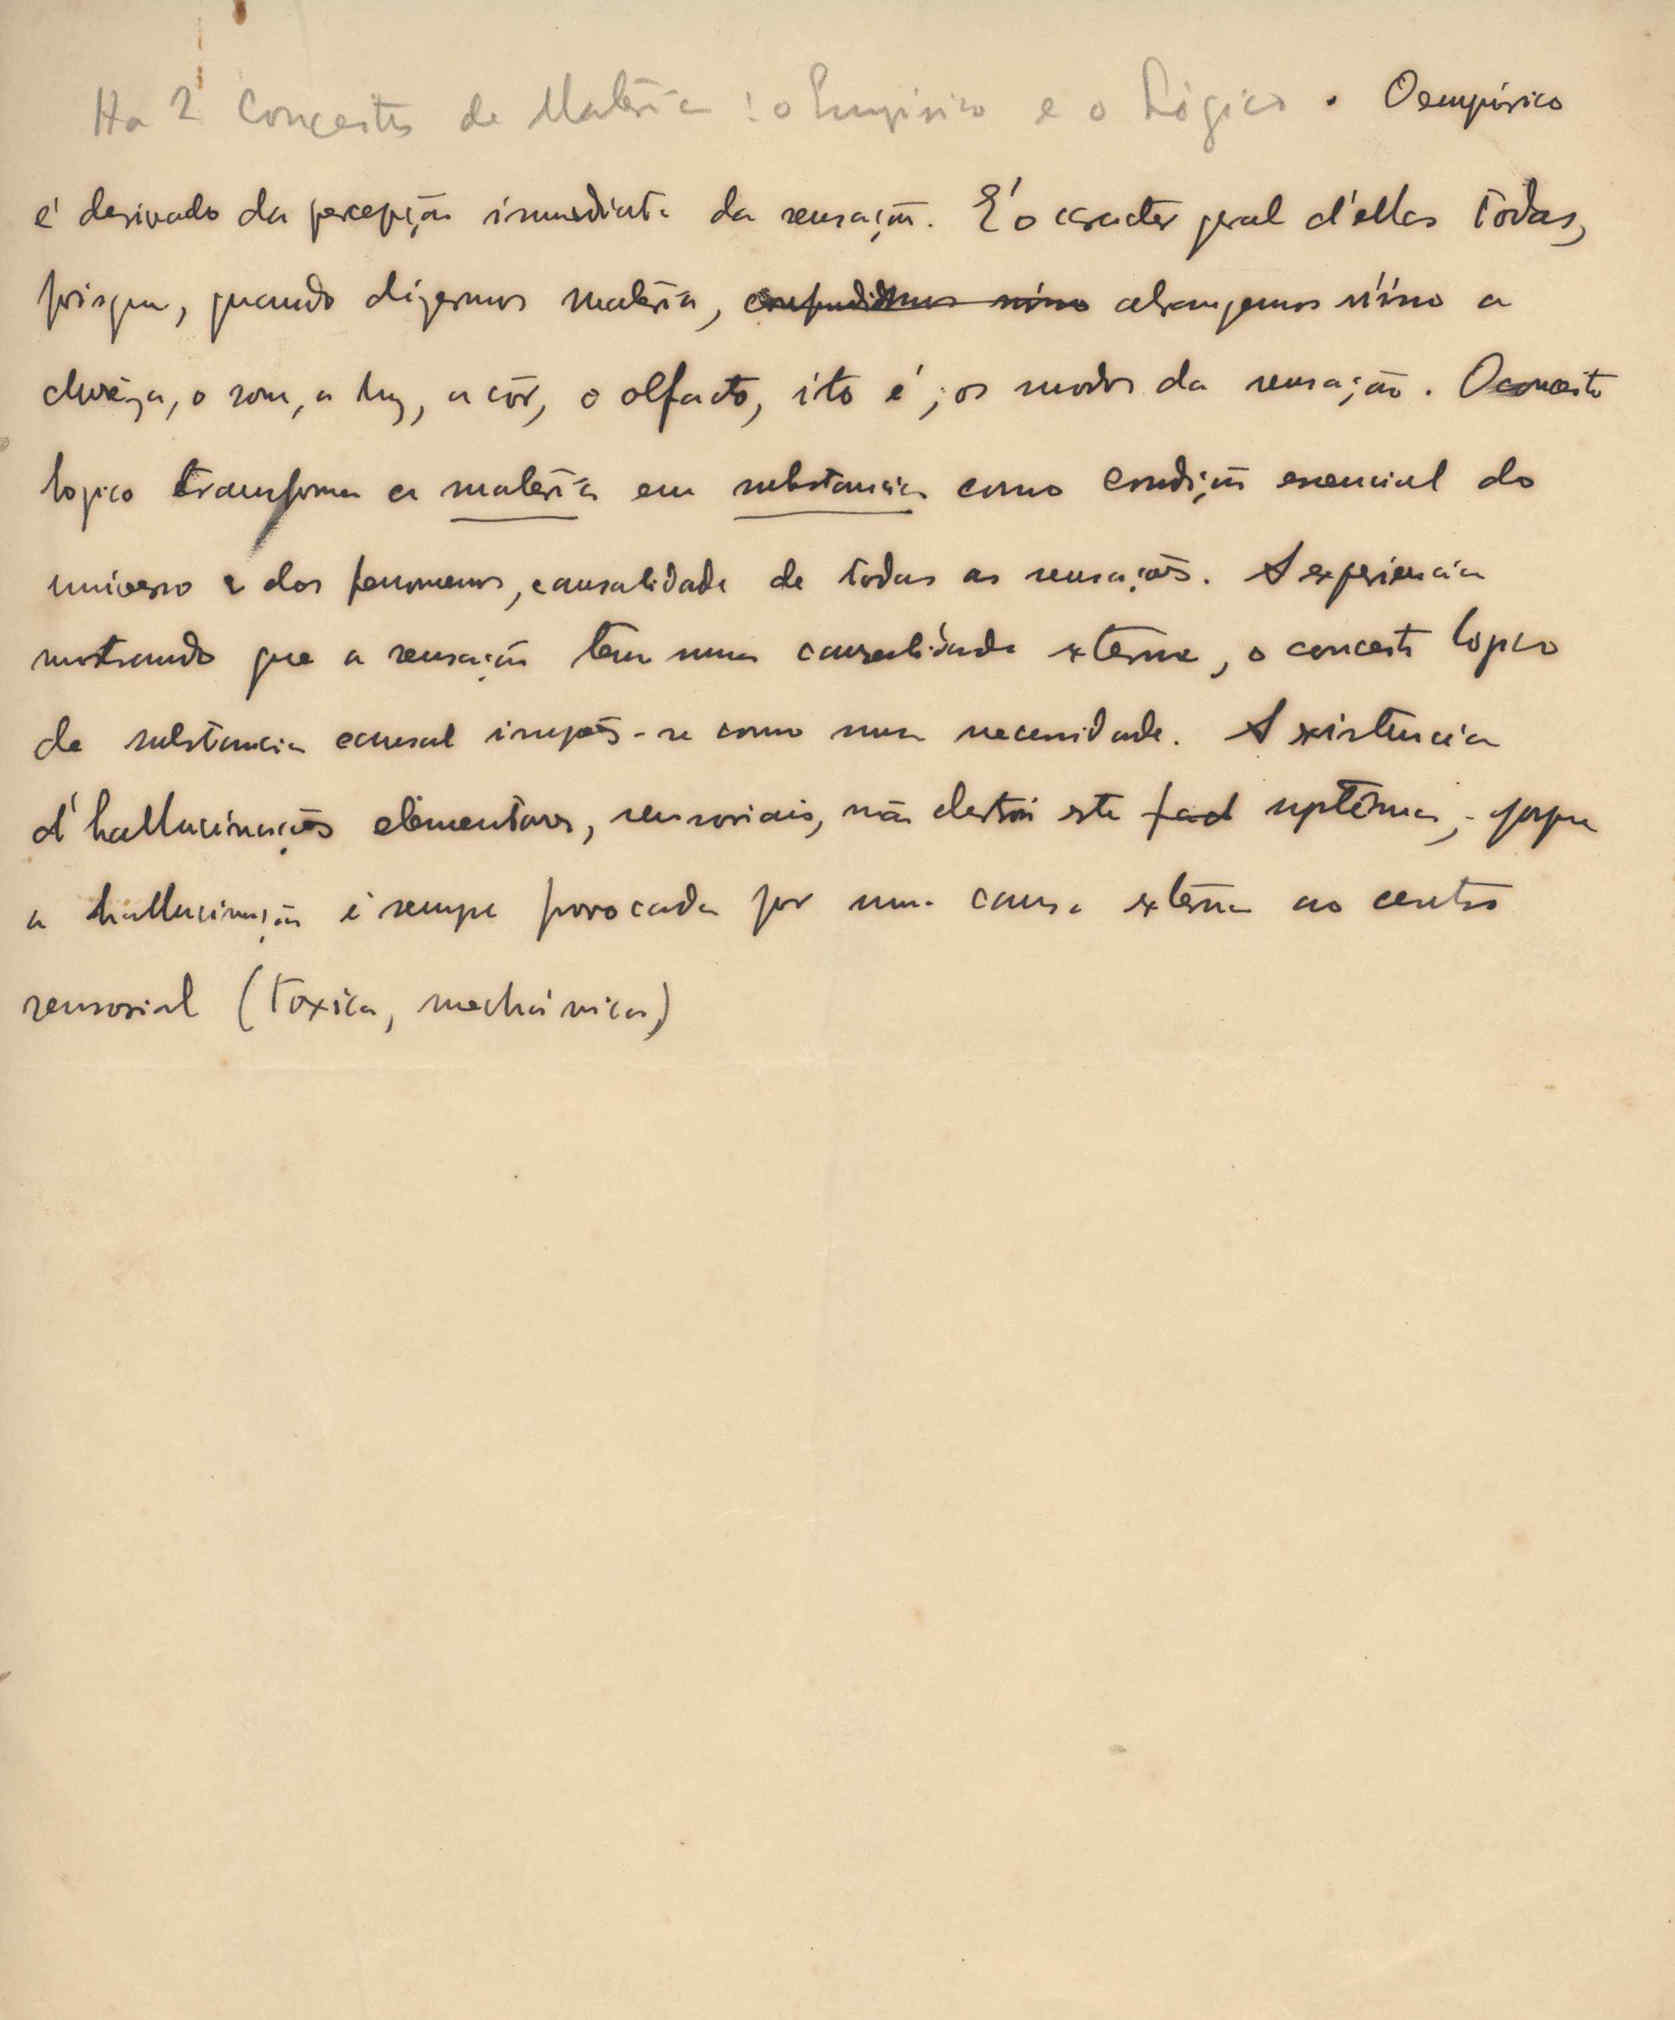 Ha 2 Conceitos de Materia: o Empirico e o Lógico. O empirico
é derivado da percepção immediata da sensação. É o caracter geral d'ellas todas,
porisque, quando dizermos materia, confundidmos nisso abrangemos n'isso a
dureza, o som, a luz, a côr, o olfacto, isto é, os modos da sensação. O conceito
logico transforma a materia em substancia como condição essencial do
universo e dos fenomenos, causalidade de todas as sensações. A experiencia
mostrando que a sensação tem uma causalidade externa, o conceito logico
de substancia causal impoēs-se como uma necessidade. A existencia
d'hallucinações elementares, sensoriais, não destroi este fact, porque
a hallucinação é sempre provocada por uma causa externa ao centro
sensorial (toxica, mechánica)